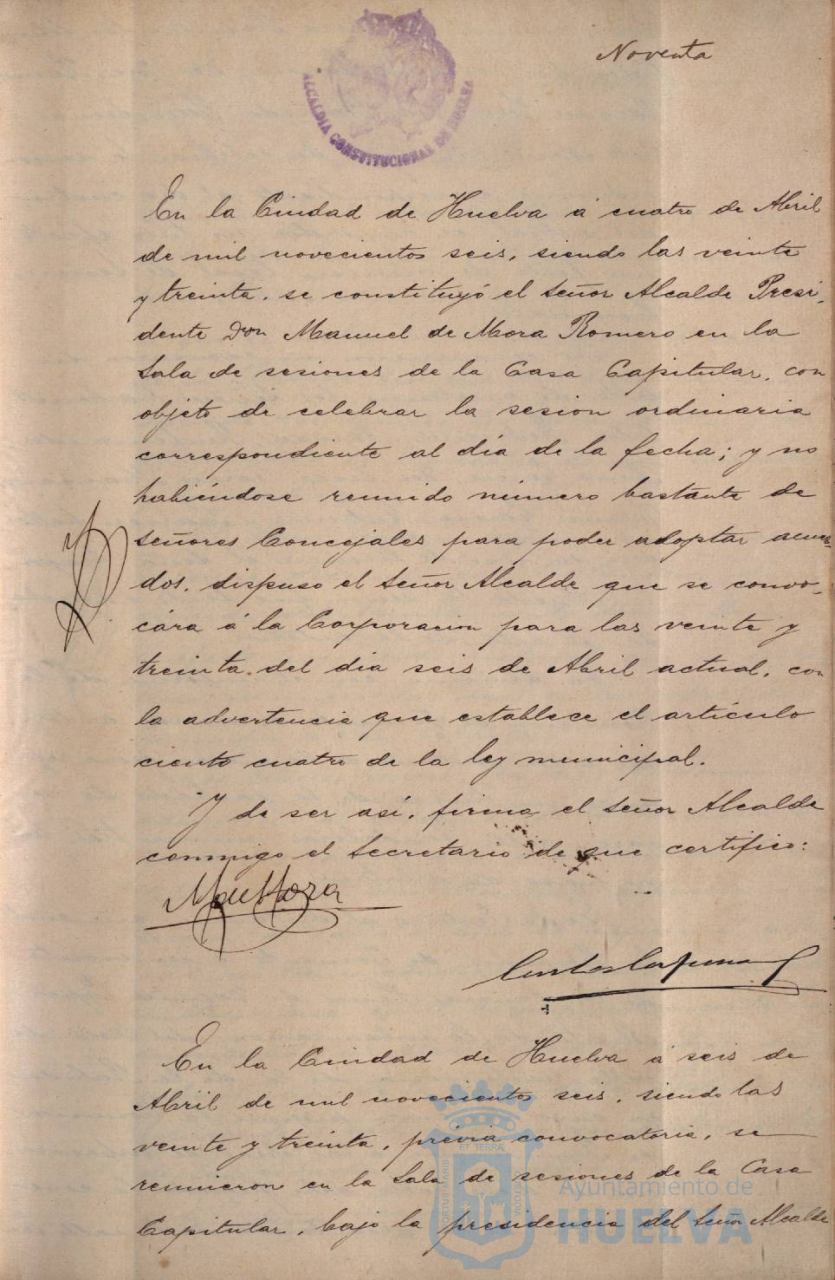 Noventa
ALCALDIA CONSTITUCIONAL DE HUELVA
En la Ciudad de Huelva á cuatro de Abril
de mil novecientos seis, siendo las veinte
y treinta, se constituyó el Señor Alcalde Presi-
dente Don Manuel de Mora Romero en la
Sala de sesiones de la Casa Capitular, con
objeto de celebrar la sesion ordinaria
correspondiente al día de la fecha; y no
habiéndose reunido número bastante de
señores Concejales para poder adoptar acuer-
dos, dispuso el Señor Alcalde que se convo-
cára á la Corporacion para las veinte y
treinta del dia seis de Abril actual, con
la advertencia que establece el artículo
ciento cuatro de la ley municipal.
Y de ser así, firma el Señor Alcalde
conmigo el Secretario de que certifico:
En la Ciudad de Huelva á seis de
Abril de mil novecientos seis, siendo las
veinte y treinta, prévia convocatoria, se
reunieron en la Sala de sesiones de la Casa
Capitular, bajo la presidencia del Señor Alcalde
Ayuntamiento de
HUELVA